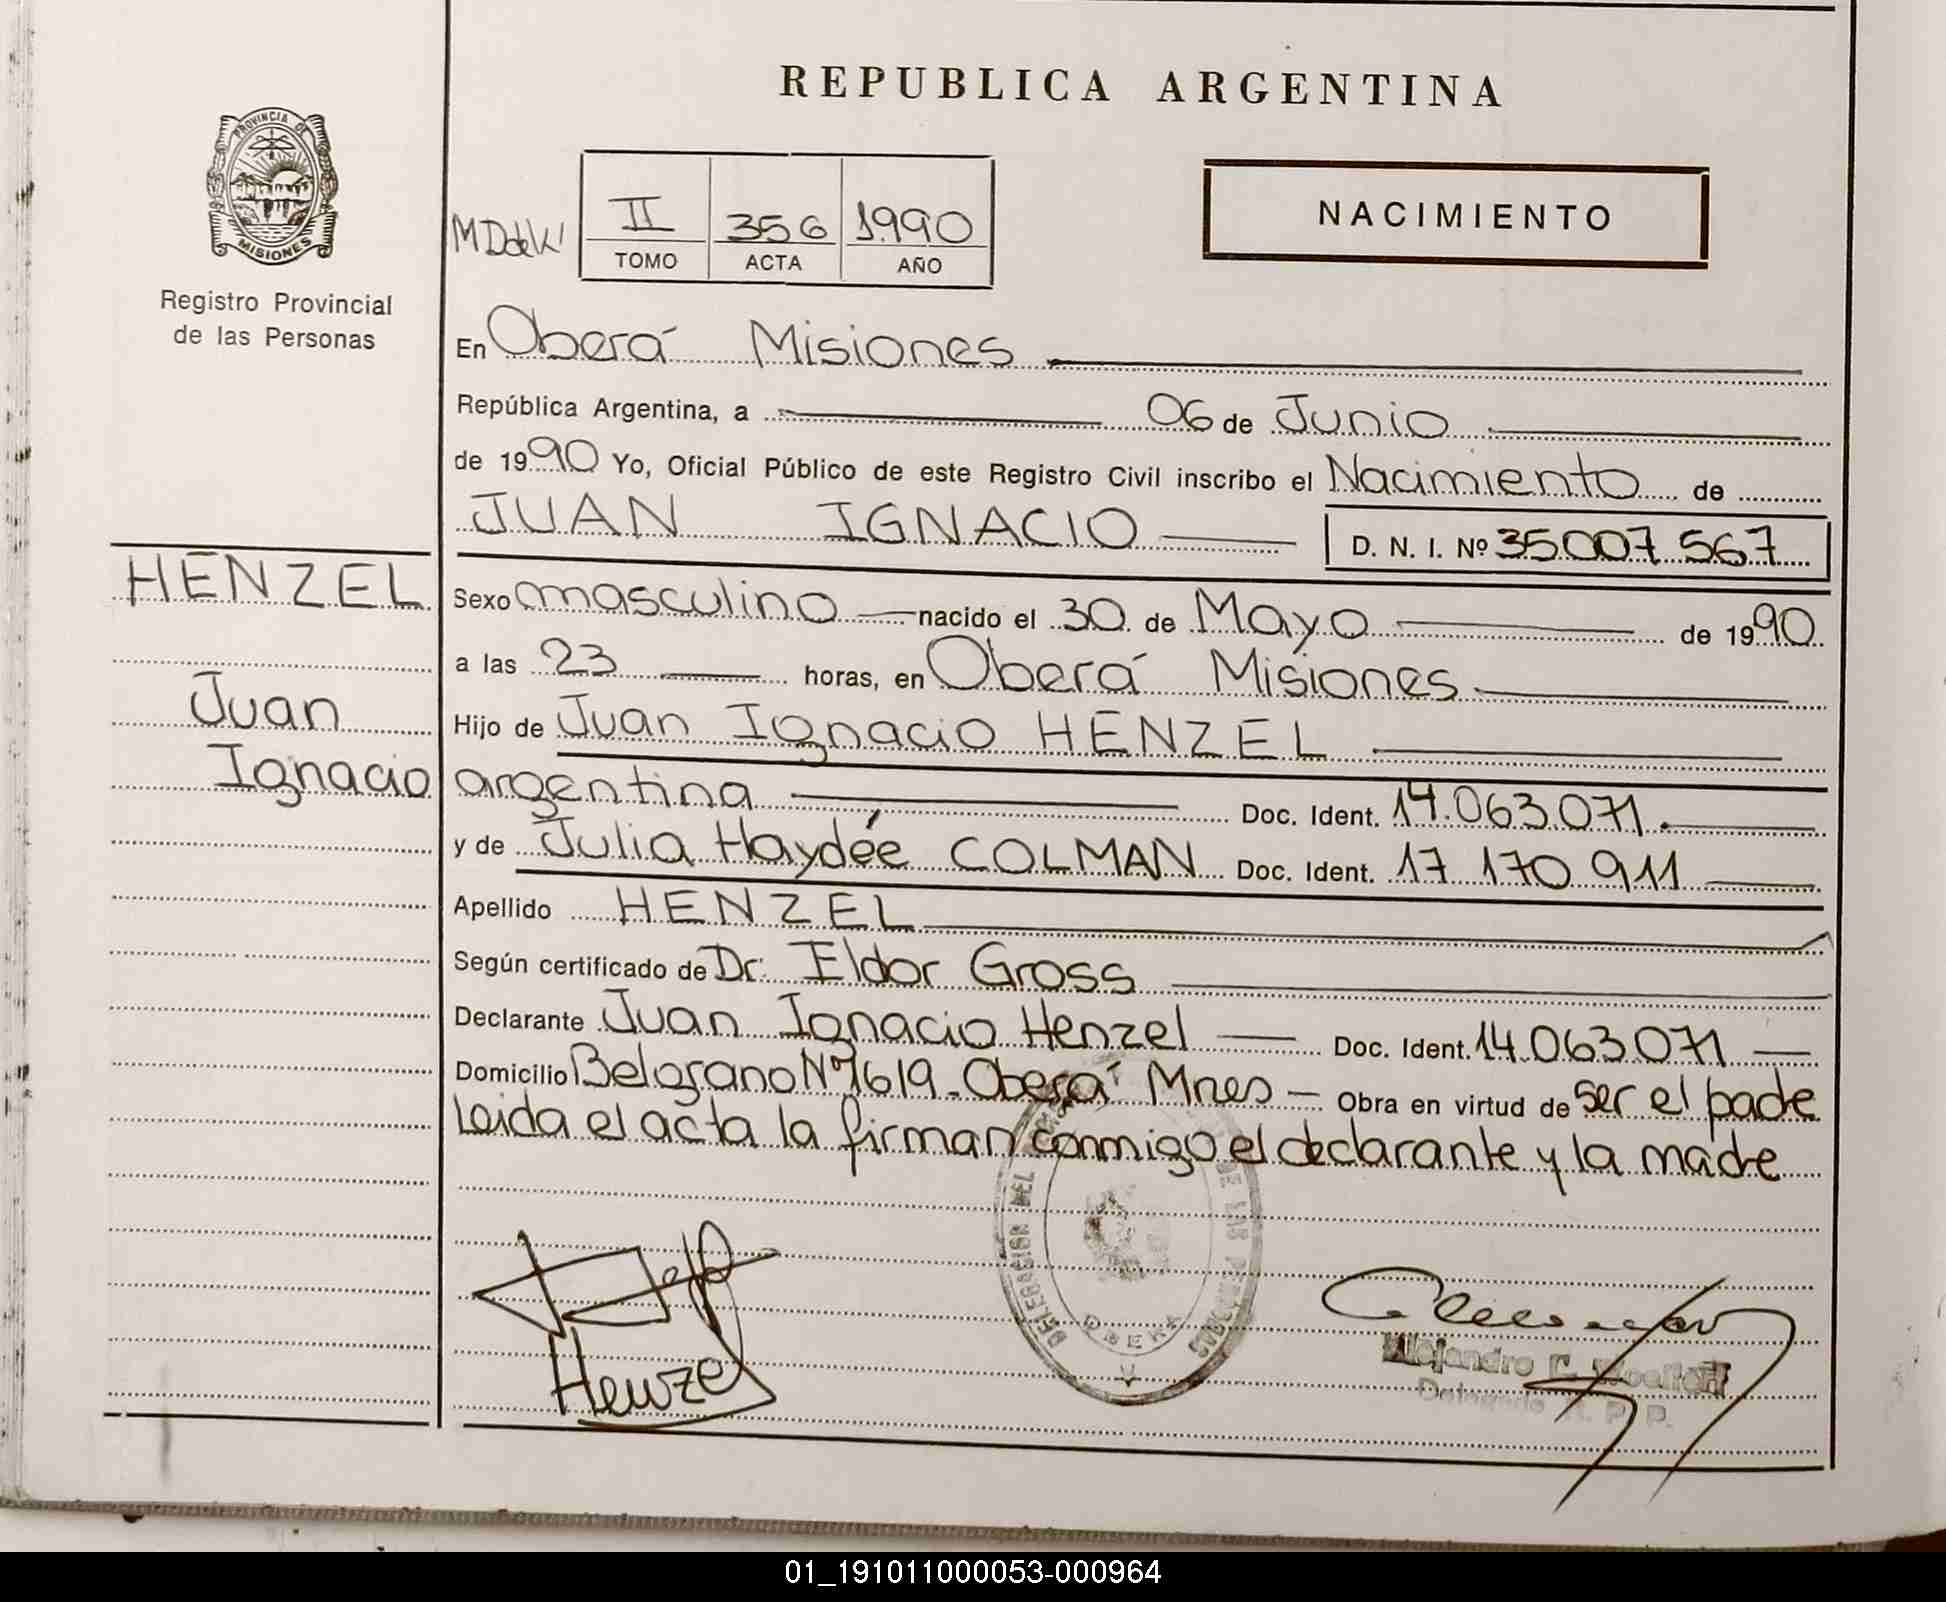 REPUBLICA ARGENTINA
PROVINCIA DE
MISIONES
Registro Provincial
de las Personas
II 356 1990
TOMO ACTA AÑO
NACIMIENTO
En Oberá Misiones
República Argentina, a 06 de Junio
de 1990 Yo, Oficial Público de este Registro Civil inscribo el Nacimiento de
JUAN IGNACIO D. N. I. Nº 35007 567
HENZEL
Juan
Ignacio
Sexo masculino nacido el 30 de Mayo de 1990
a las 23 horas, en Oberá Misiones
Hijo de Juan Ignacio HENZEL
argentina Doc. Ident. 14.063.071.
y de Julia Haydée COLMAN Doc. Ident. 17 170 911
Apellido HENZEL
Según certificado de Dr. Eldor Gross
Declarante Juan Ignacio Henzel Doc. Ident. 14.063.071
Domicilio Belgrano Nº1619 - Oberá Mnes - Obra en virtud de ser el pade
Leida el acta la firman conmigo el declarante y la madre
DELEGACIÓN DEL DE LAS PERSONAS
OBERA
Henzel
Alejandro
Delegado R. P. P.
01_191011000053-000964